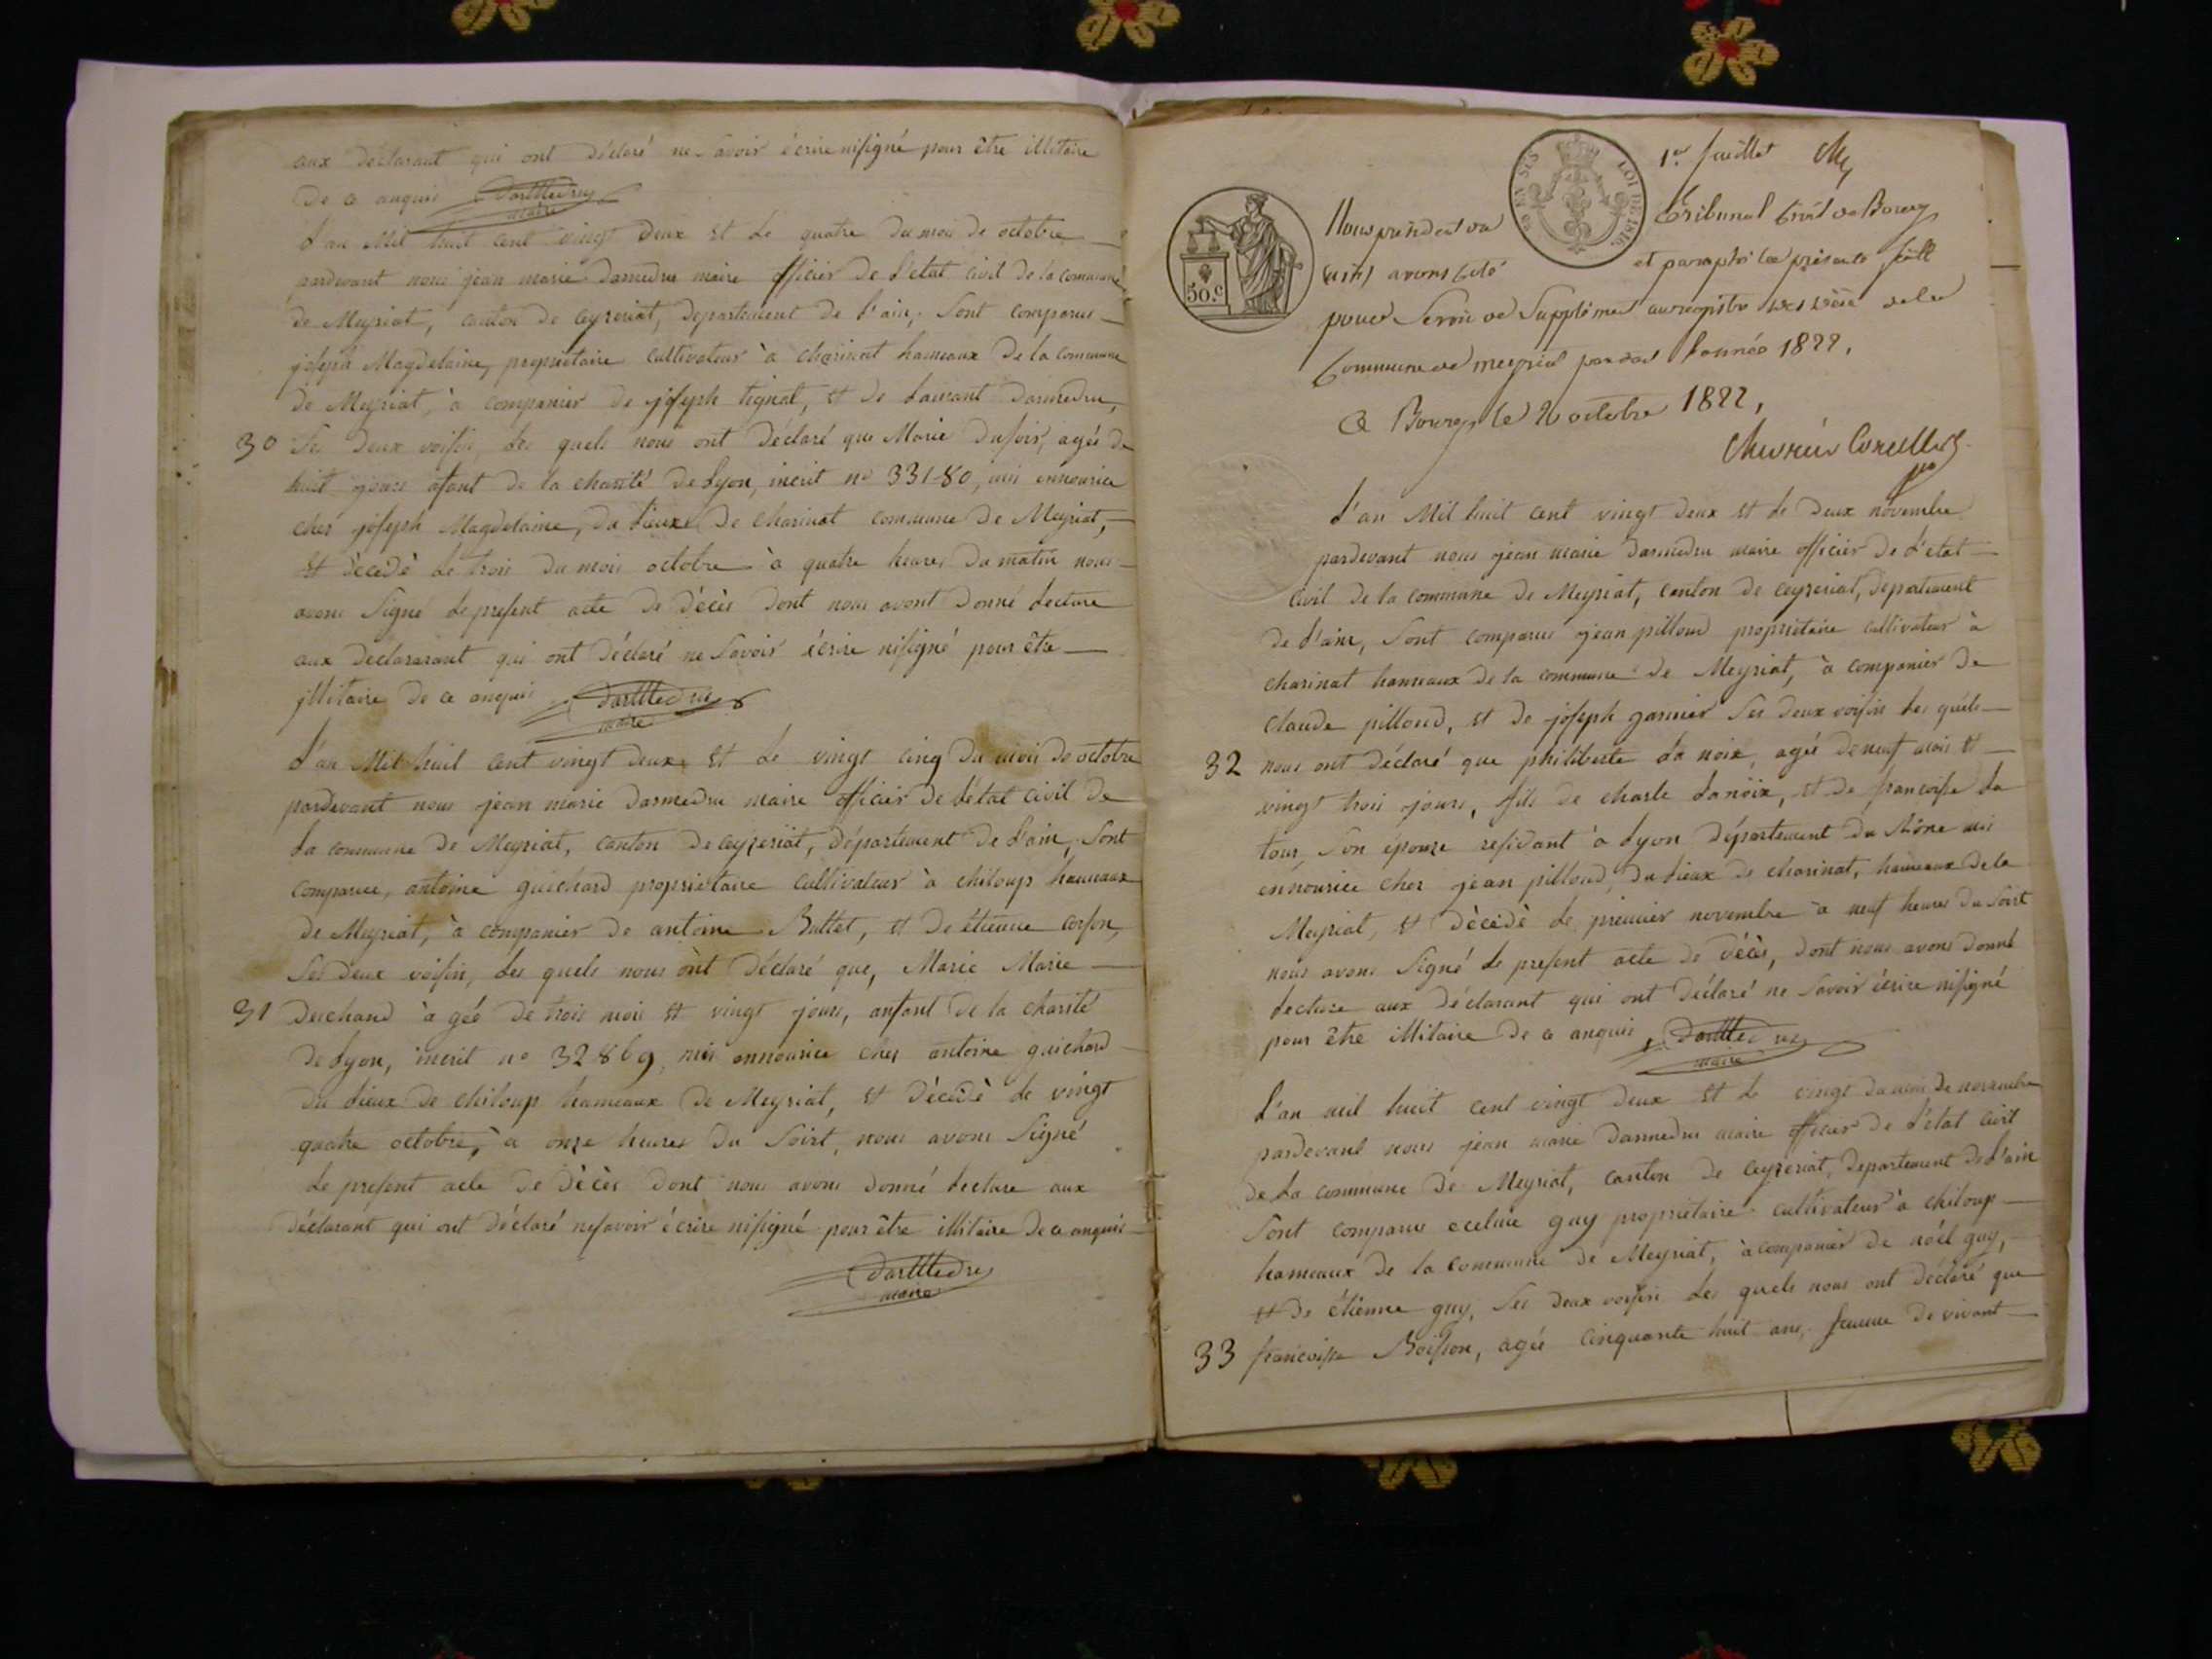 aux déclarant qui ont déclaré ne Savoir écrire nisigné pour être illitaire
De ce anquis Darmedru
maire
L'an Mil huit cent vingt Deux et Le quatre du mois de octobre
pardevant nous jean marie Darmedru maire officier De L'etat civil de la commune
de Meyriat, canton de Ceyzeriat, département de L'ain, Sont comparus
joseph Magdelaine, proprietaire cultivateur à charinat hameaux De la commune
De Meyriat, à companier de joseph tignat, et de Laurant Darmedru,
30 Ses Deux voisin, Les quels nous ont Déclaré que Marie Dufois, agée de
huit jours afant De la charité De Lyon, inscrit n° 331-80, mis ennourice
ches joseph Magdelaine, du Lieux De charinat commune De Meyriat,
et dècedè Le trois Du mois octobre à quatre heures Du matin nous
avons Signé Le present acte De Dècès Dont nous avont Donné Lecture
aux Declararant qui ont Déclaré ne Savoir écrire nisigné pour être
illitaire De ce anquis Darmedru
maire
L'an Mil huit cent vingt deux et Le vingt cinq Du mois de octobre
pardevant nous jean marie Darmedru maire officier de L'état civil De
La commune De Meyriat, canton De ceyzeriat, Département De L'ain, Sont
comparus, antoine guichard proprietaire cultivateur à chiloup hameaux
De Meyriat, à companier De antoine Buttet, et De étienne corson,
Ses Deux voisin, Les quels nous ont Déclaré que, Marie Marie
31 Duchand à gée De trois mois et vingt jours, anfant De la charité
De Lyon, inscrit n° 32869, mis ennourice ches antoine guichard
Du Lieux De chiloup hameaux De Meyriat, et Dècedè Le vingt
quatre octobre, à onze heures Du Soirt, nous avons Signé
Le present acte De Dècès Dont nous avons donné Lecture aux
déclarant qui ont Déclaré nesavoir écrire nisigné pour être illitaire De ce anquis
Darmedru
maire
1er Juillet
LOI DE 1816.
50.c
Nous président du Tribunal Civil de Bourg
avons coté et paraphé la présente feuille
pour Servir de Supplément au registre des décès de la
Commune de meyriat pendant L'année 1822.
A Bourg le 26 octobre 1822,
L'an Mil huit cent vingt deux et Le Deux novembre
pardevant nous jean marie Darmedru maire officier De L'etat
Civil De la commune De Meyriat, canton De ceyzeriat, Département
de L'ain, Sont comparus jean pilloud proprietaire cultivateur à
charinat hameaux De la commune De Meyriat, à companier De
Claude pilloud, et De joseph garnier Ses Deux voisin Les quels
32 nous ont Déclaré que philiberte La noix, agée De neuf mois et
vingt trois jours, fils De charle Lanoix, et De francoise La
tour, Son épouze residant à Lyon Département Du Rône mis
ennourice ches jean pilloud, Du Lieux De charinat, hameaux De la
Meyriat, et Dècedè Le premier novembre à neuf heures Du Soirt
nous avons Signé Le present acte De Dècès, Dont nous avons Donné
Lecture aux Déclarant qui ont Déclaré ne Savoir écrire nisigné
pour être illitaire De ce anquis, Darmedru
maire
L'an mil huit cent vingt Deux et Le vingt Du mois De novembre
pardevant nous jean marie Darmedru maire officier De L'état civil
De La commune De Meyriat, canton De Ceyzeriat, Departement De L'ain
Sont comparus guy proprietaire cultivateur à chiloup
hameaux De la commune De Meyriat, à companier De noél guy,
et De étienne guy, Ses Deux voisin Les quels nous ont Déclaré que
33 francoise Boisson, agée cinquante huit ans, femme De vivant